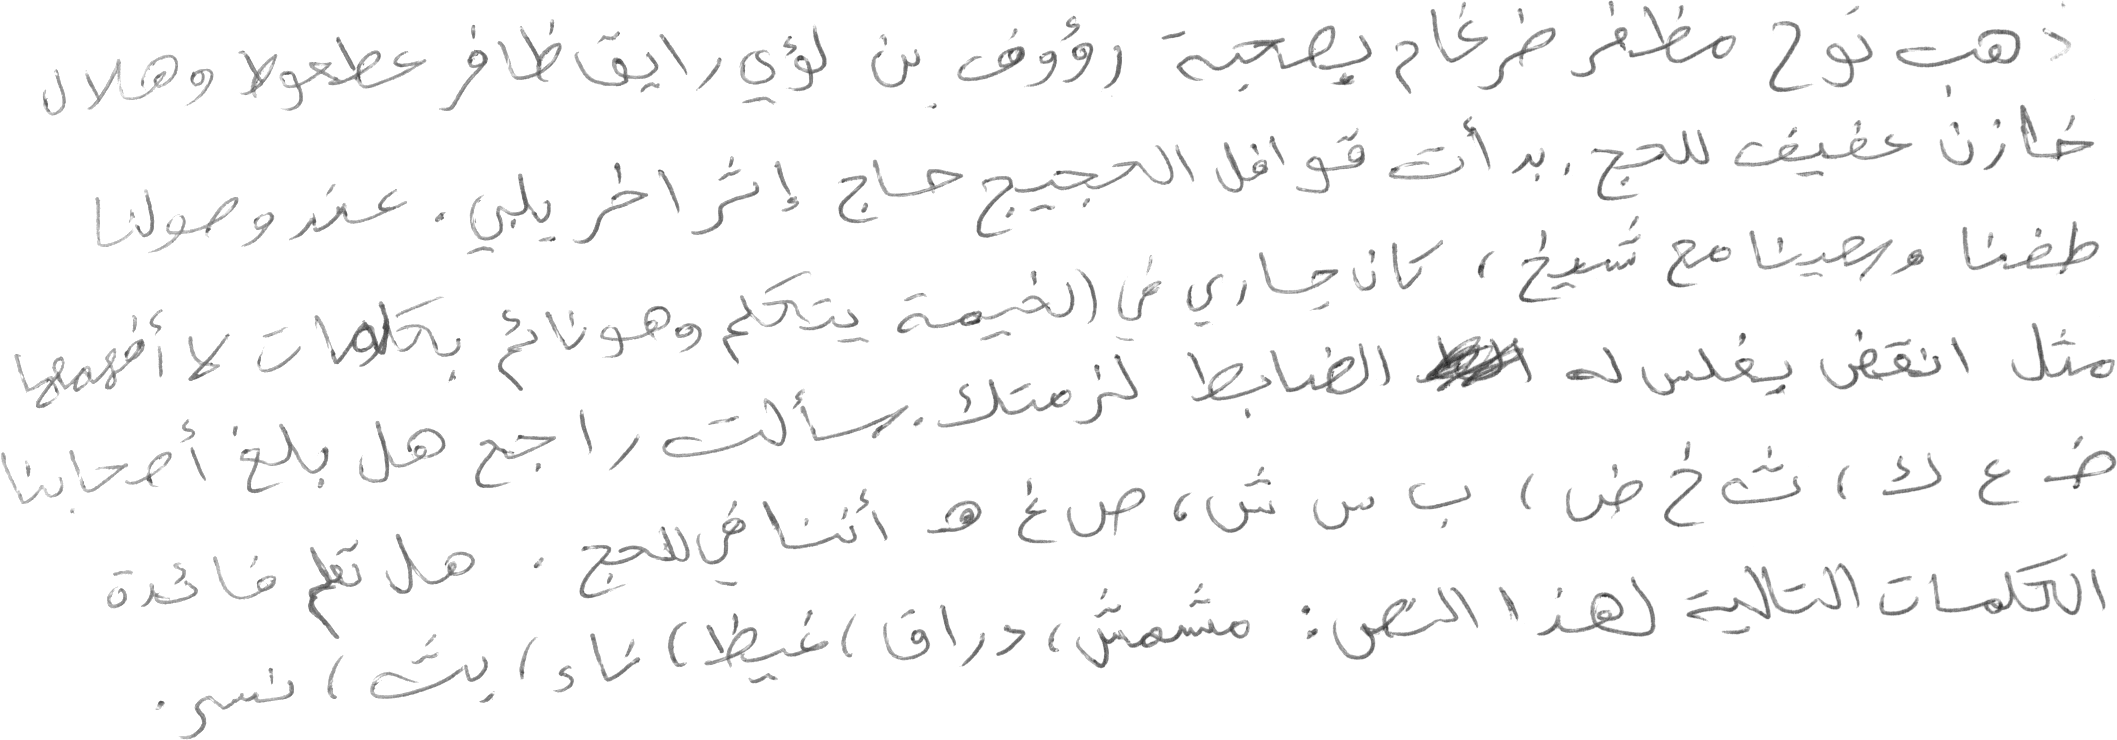 ذهب نوح مظفر ضرغام بصحبة رؤوف بن لؤي رايق ظافر عطعوط وهلال
خازن عفيف للحج. بدأت قوافل الحجيج حاج إثر اخر يلبي. عند وصولنا
طفنا وسعينا مع شيخ، كان جاري في الخيمة يتكلم وهو نائم بكلمات لا أفهمها
مثل انقض يغلس له الضابط لزمتك. سألت راجح هل بلغ أصحابنا
ض ع ك، ث خ ض، ب س ش، ص غ هـ أننا في للحج. هل تعلم فائدة
الكلمات التالية لهذا النص: مشمش، دراق، غيظ، ناء، بث، نسر.